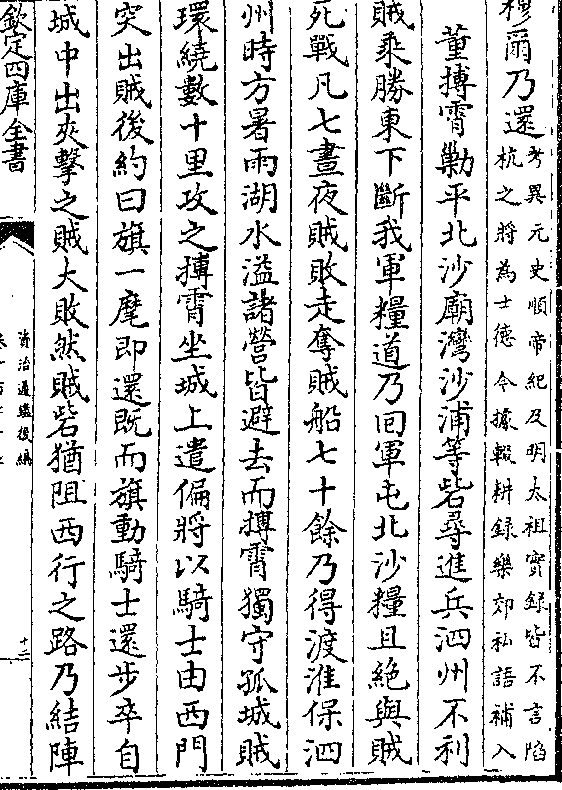 穆爾乃還考異元史順帝紀及明太祖實録皆不言陷
杭之將為士德今據輟耕録樂郊私語補入
董摶霄勦平北沙廟灣沙浦等砦尋進兵泗州不利
賊乘勝東下斷我軍糧道乃囘軍屯北沙糧且絶與賊
死戰凡七晝夜賊敗走奪賊船七十餘乃得渡淮保泗
州時方暑雨湖水溢諸營皆避去而摶霄獨守孤城賊
環繞數十里攻之摶霄坐城上遣偏將以騎士由西門
突出賊後約曰旗一麾即還既而旗動騎士還步卒自
城中出夾擊之賊大敗然賊砦猶阻西行之路乃結陣
欽定四庫全書
資治通鑑後編
十二